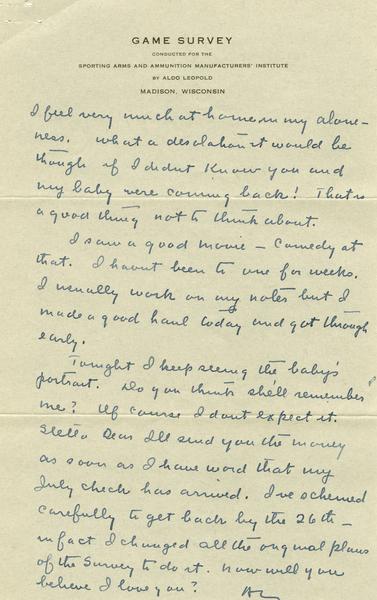 GAME SURVEY
CONDUCTED FOR THE
SPORTING ARMS AND AMMUNITION MANUFACTURERS' INSTITUTE
BY ALDO LEOPOLD
MADISON, WISCONSIN
I feel very much at home in my alone-
ness. What a desolation it would be
though if I didnt know you and
my baby were coming back! That is
a good thing not to think about.
I saw a good movie – comedy at
that. I havnt been to one for weeks.
I usually work on my notes but I
made a good haul today and got through
early.
Tonight I keep seeing the baby's
portrait. Do you think she'll remember
me? Of course I dont expect it.
Dear I'll send you the money
as soon as I have word that my
July check has arrived. I've schemed
carefully to get back by the 26th –
in fact I changed all the original plans
of the Survey to do it. Now will you
believe I love you? AL